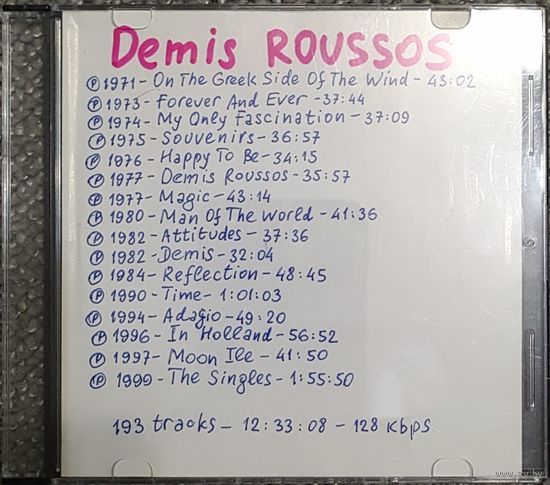 Demis ROUSSOS
Ⓟ 1971 - On The Greek Side Of The Wind - 43:02
Ⓟ 1973 - Forever And Ever - 37:44
Ⓟ 1974 - My Only Fascination - 37:09
Ⓟ 1975 - Souvenirs - 36:57
Ⓟ 1976 - Happy To Be - 34:15
Ⓟ 1977 - Demis Roussos - 35:57
Ⓟ 1977 - Magic - 43:14
Ⓟ 1980 - Man Of The World - 41:36
Ⓟ 1982 - Attitudes - 37:36
Ⓟ 1982 - Demis - 32:04
Ⓟ 1984 - Reflection - 48:45
Ⓟ 1990 - Time - 1:01:03
Ⓟ 1994 - Adagio - 49:20
Ⓟ 1996 - In Holland - 56:52
Ⓟ 1997 - Moon Ile - 41:50
Ⓟ 1999 - The Singles - 1:55:50
193 tracks - 12:33:08 - 128 kbps